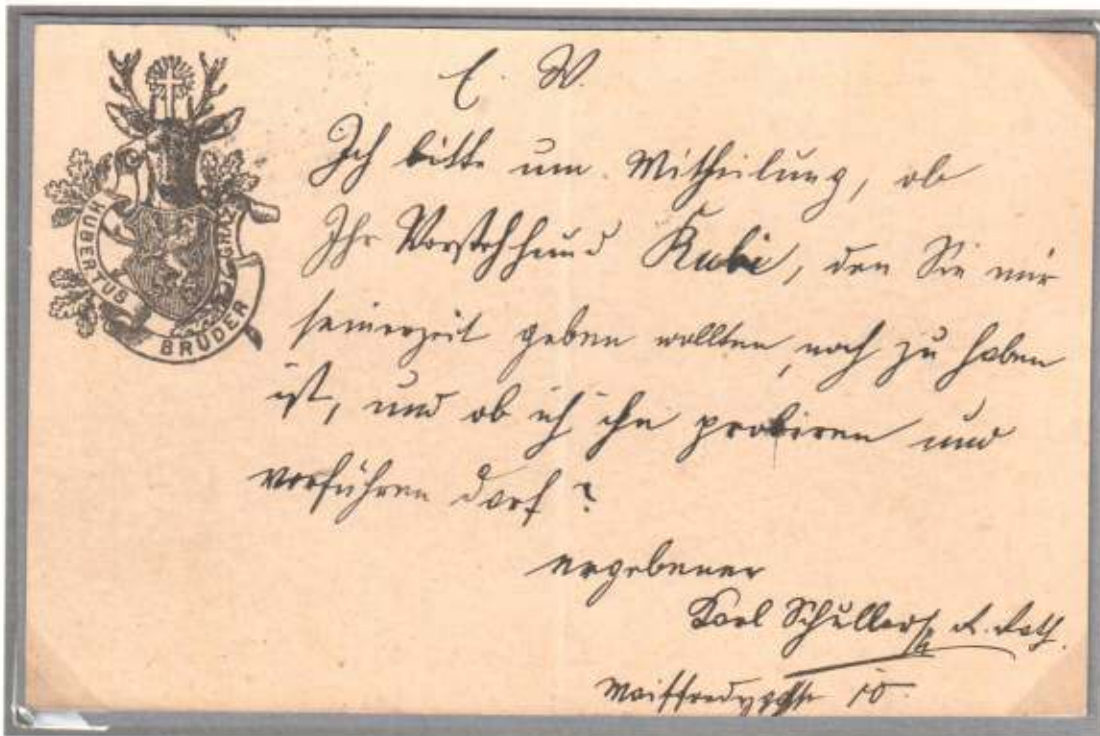 HUBERTUS
BRÜDER
GRAZ
E. W.
Ich bitte um Mittheilung, ob
Ihr Vorstehhund Rubi, den Sie mir
seinerzeit geben wollten, noch zu haben
ist, und ob ich ihn probiren und
vorführen darf?
ergebener
Karl Schuller
Maiffredygasse 10